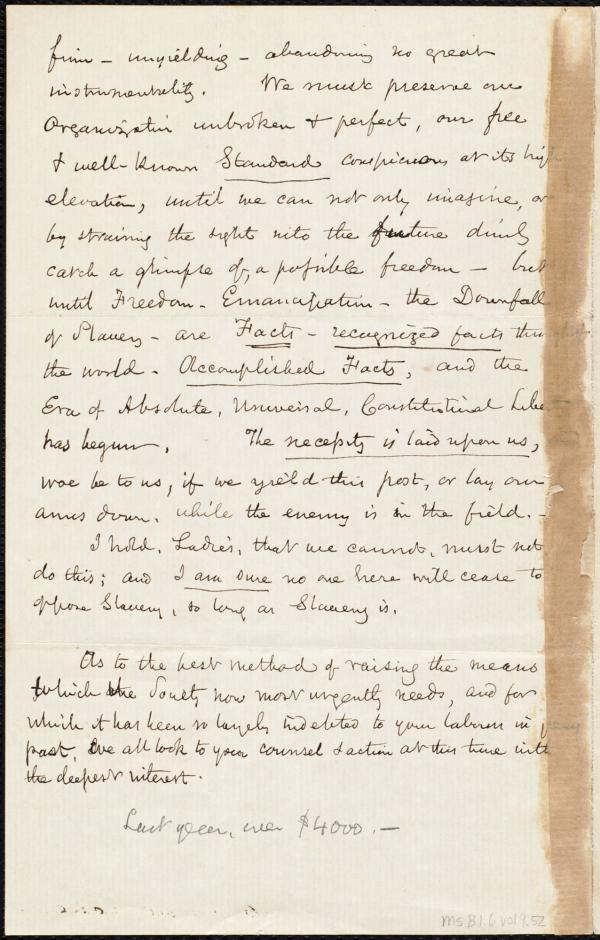 firm - unyielding - abandoning no great
instrumentality. We must preserve our
Organization unbroken & perfect, our free
& well-known Standard conspicuous at its high
elevation, until we can not only imagine, or
by straining the sight into the future dimly
catch a glimpse of, a possible freedom - but
until Freedom - Emancipation - the Downfall
of Slavery - are Facts - recognized facts throughout
the world - Accomplished Facts, and the
Era of Absolute, Universal, Constitutional Liberty
has begun. The necessity is laid upon us,
woe be to us, if we yield this post, or lay our
arms down, while the enemy is in the field. -
I hold, Ladies, that we cannot, must not
do this; and I am sure no one here will cease to
oppose Slavery, so long as Slavery is.
As to the best method of raising the means
which the Society now most urgently needs, and for
which it has been so largely indebted to your labors in years
past, we all look to your counsel & action at this time with
the deepest interest.
Last year, over $4000. -
Ms.B.1.6 vol 9.52